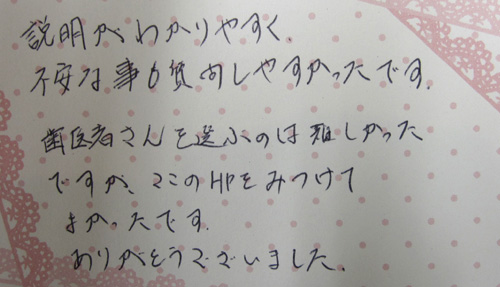 説明がわかりやすく、
不安な事も質問しやすかったです。
歯医者さんを選ぶのは難しかった
ですが、ここのHPをみつけて
よかったです。
ありがとうございました。